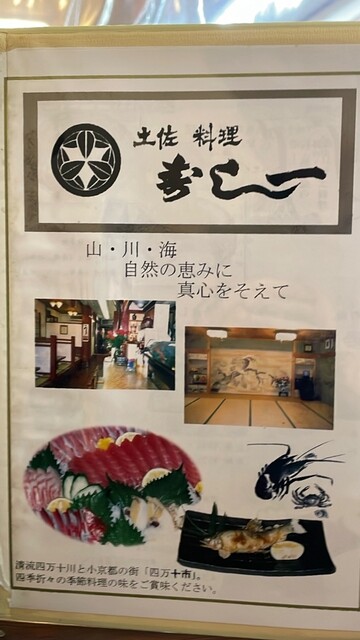 土佐 料理
寿し一
山・川・海
自然の恵みに
真心をそえて
清流四万十川と小京都の街「四万十市」。
四季折々の季節料理の味をご賞味ください。